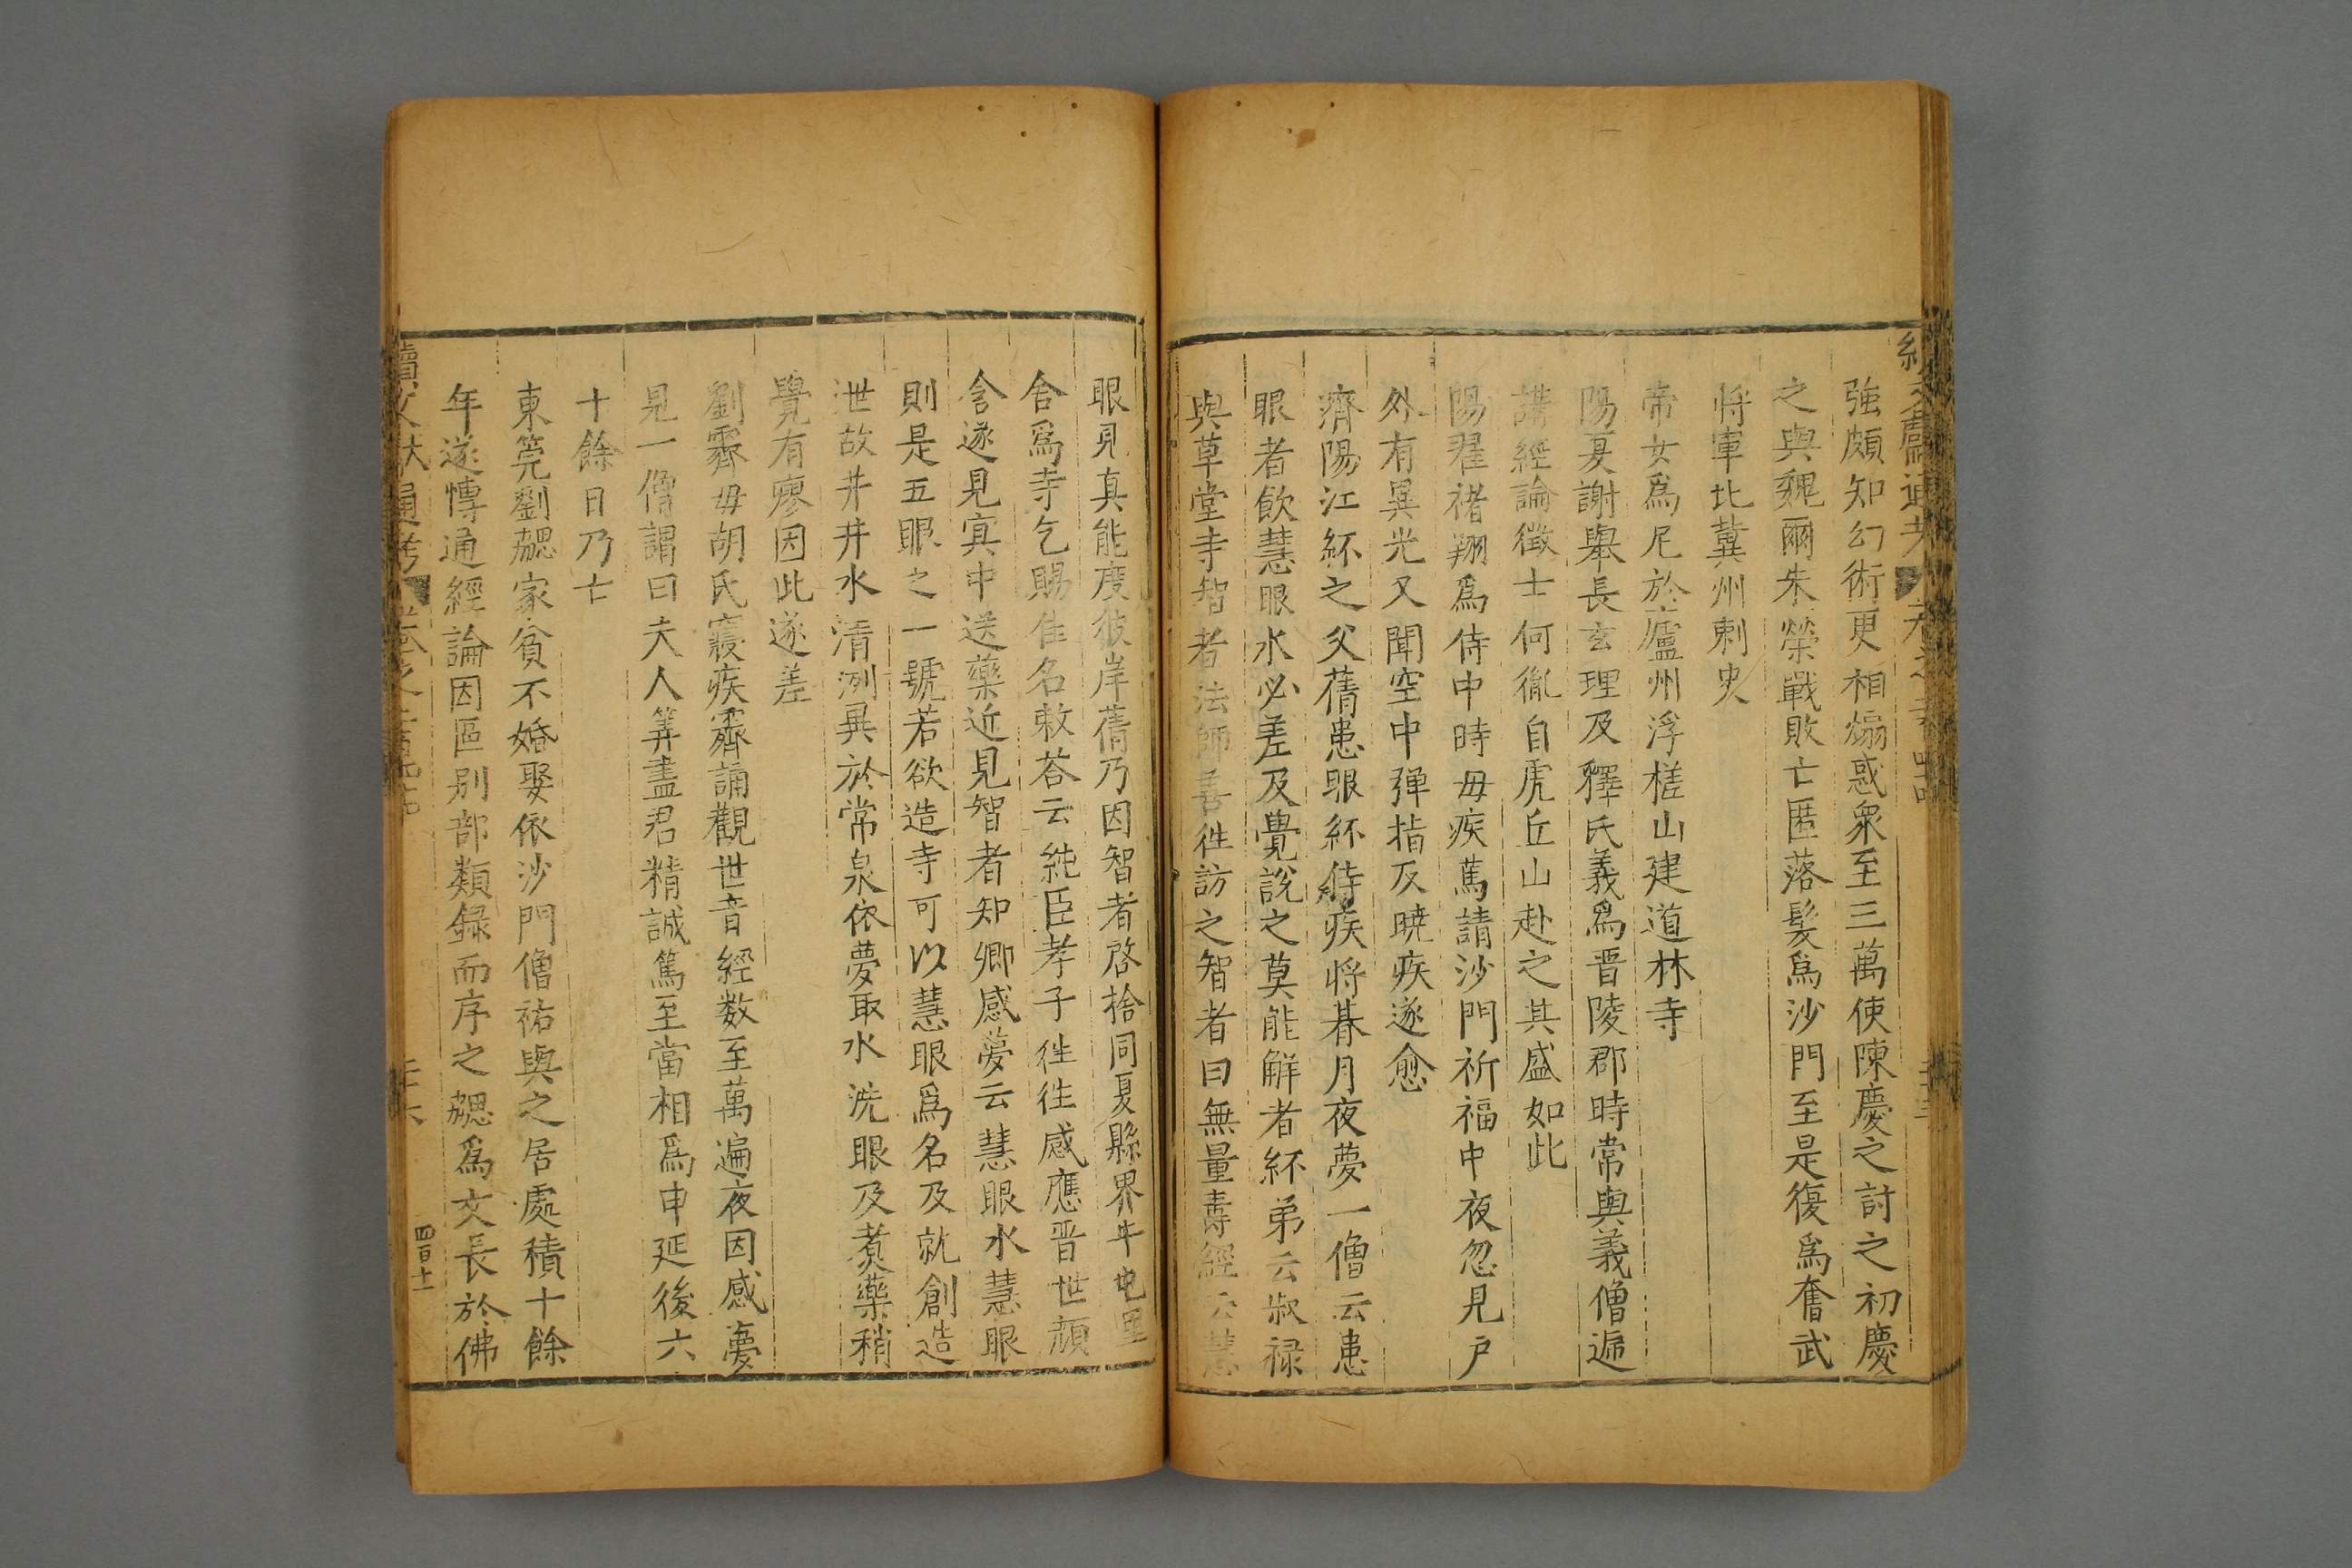 強頗知幻術更相煽惑衆至三萬使陳慶之討之初慶
之與魏爾朱榮戰敗亡匿落髮爲沙門至是復爲奮武
將軍北冀州刺史
帝女爲尼於廬州浮槎山建道林寺
陽夏謝舉長玄理及釋氏義爲晋陵郡時常與義僧遞
講經論徵士何胤自虎丘山赴之其盛如此
陽翟褚翔爲侍中時母疾篤請沙門祈福中夜忽見户
外有異光又聞空中彈指及曉疾遂愈
濟陽江紑之父蒨患眼紑侍疾將朞月夜夢一僧云患
眼者飲慧眼水必差及覺說之莫能解者紑弟云叔祿
與草堂寺智者法師善徃訪之智者曰無量壽經云慧
眼見真能度彼岸蒨乃因智者啓捨同夏縣界牛屯里
舍爲寺乞賜佳名敕荅云純臣孝子徃徃感應晋世顔
含遂見冥中送藥近見智者知卿感夢云慧眼水慧眼
則是五眼之一號若欲造寺可以慧眼爲名及就創造
泄故井井水清洌異於常泉依夢取水洗眼及煮藥稍
覺有瘳因此遂差
劉霽母胡氏寢疾霽誦觀世音經数至萬遍夜因感夢
見一僧謂曰夫人筭盡君精誠篤至當相爲申延後六
十餘日乃亡
東筦劉勰家貧不婚娶依沙門僧祐與之居處積十餘
年遂慱通經論因區别部類録而序之勰爲文長於佛
續文獻通考
四百十一